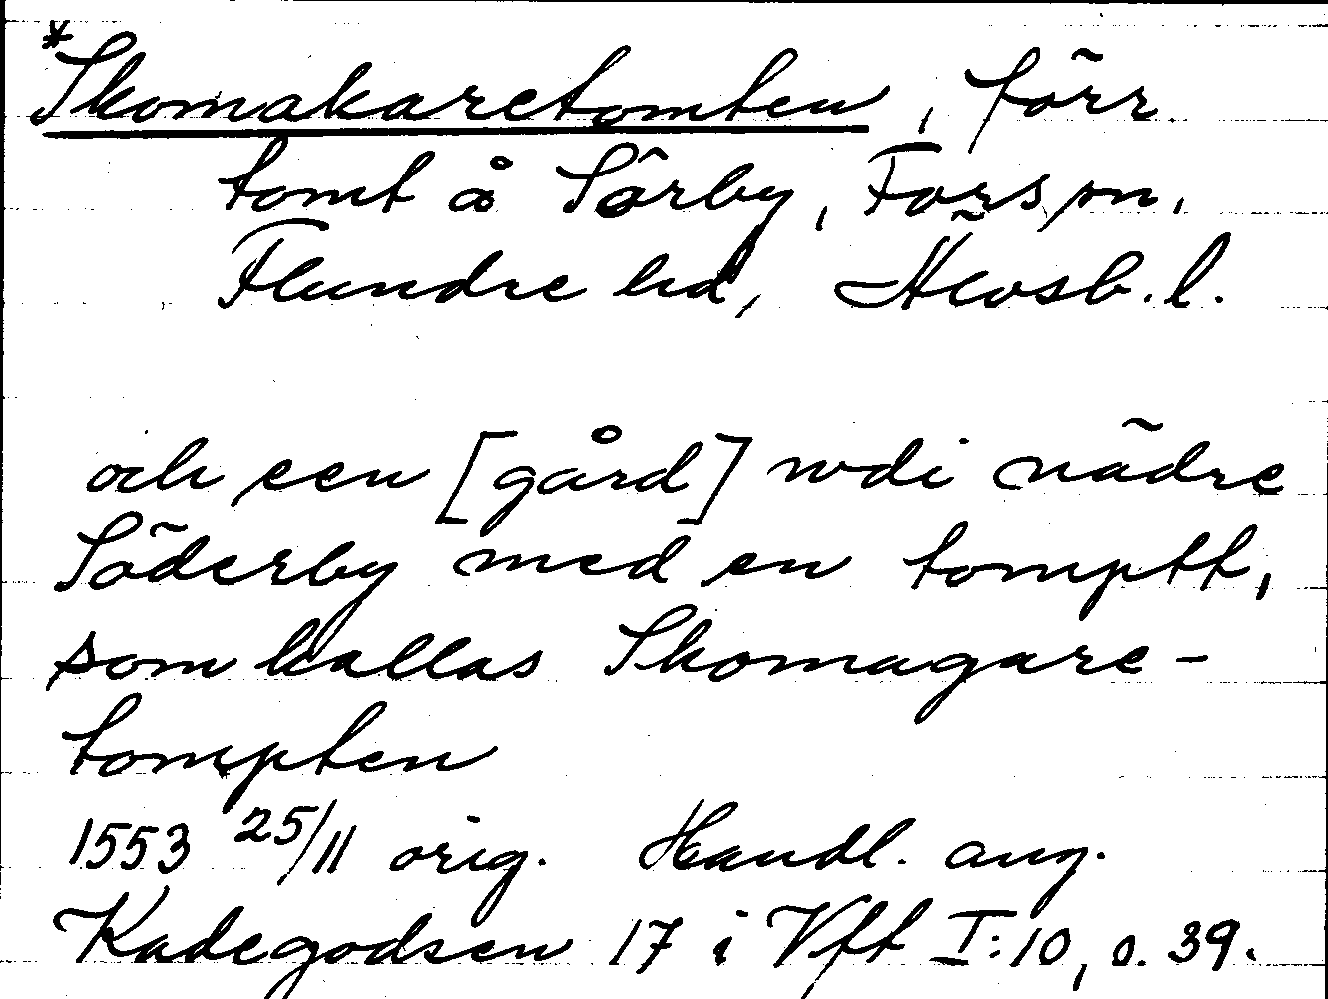 *Skomakaretomten, förr
tomt å Sörby, Fors sn,
Flundre hd, Älvsb. l.
och een [gård] wdi nädre
Söderby med en tomptt,
som kallas Skomagare-
tompten
1553 25/11 orig. Handl. ang.
Kadegodsen 17 i Vft I:10, s. 39.